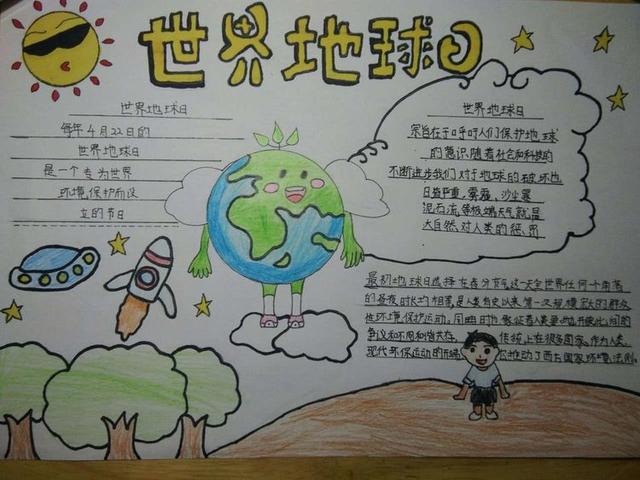 世界地球日
世界地球日
每年4月22日的
世界地球日
是一个专为世界
环境保护而设
立的节日
世界地球日
宗旨在于呼吁人们保护地球
的意识,随着社会和科技的
不断进步我们对于地球的破坏也
日益严重,雾霾,沙尘暴
泥石流,等极端天气就是
大自然对人类的惩罚
最初地球日选择在春分节气这一天全世界任何一个角落
的昼夜时长均相等是人类有史以来第一次规模大的群众
性环境保护运动。
争议和不同和谐共存。传统上在很多国家。作为人类
现代环保运动的开端 推动了西方国家环境法则。